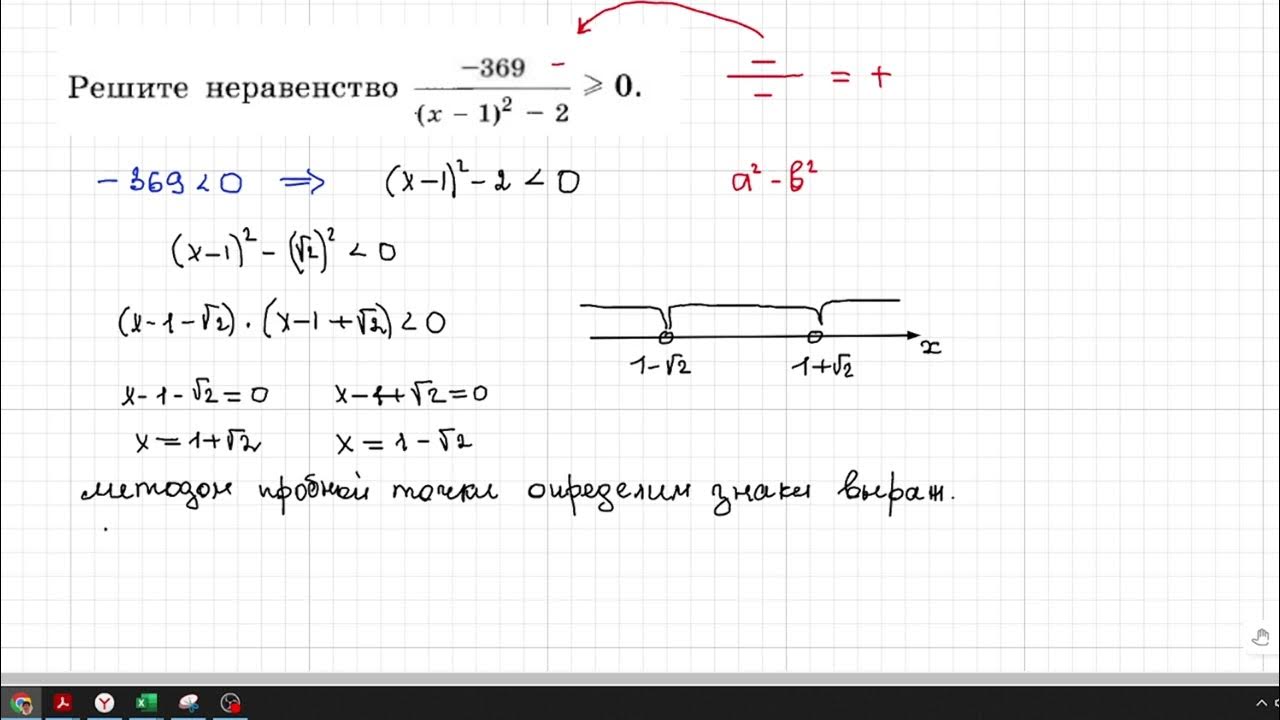 Решите неравенство −369 / ((x − 1)² − 2) ⩾ 0.
−
− / − = +
−369 < 0 ⟹ (x−1)² − 2 < 0
a² − b²
(x−1)² − (√2)² < 0
(x−1−√2) · (x−1+√2) < 0
1−√2 1+√2 x
x−1−√2 = 0 x−1+√2 = 0
x = 1+√2 x = 1−√2
методом пробной точки определим знаки выраж.